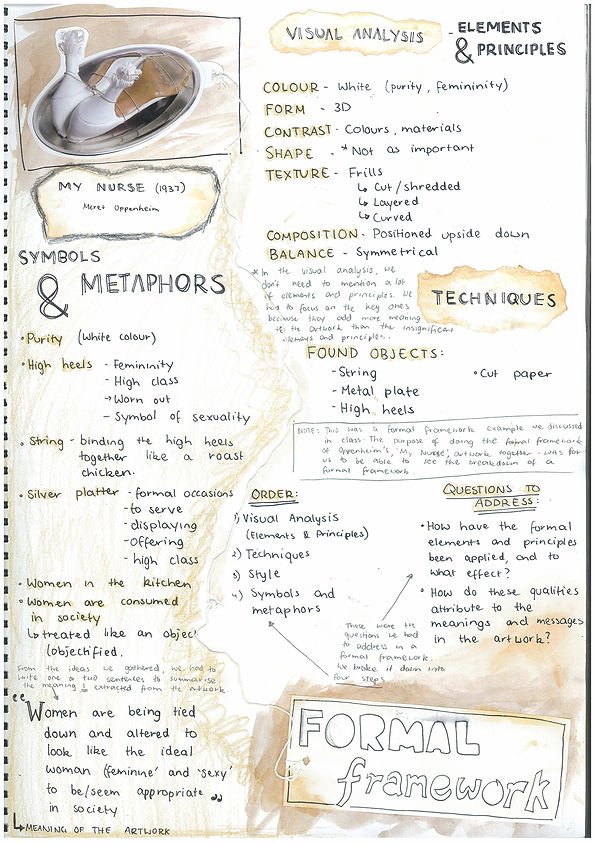 VISUAL ANALYSIS - ELEMENTS
& PRINCIPLES
COLOUR - White (purity, femininity)
FORM - 3D
CONTRAST - Colours, materials
SHAPE - * Not as important
TEXTURE - Frills
↳ Cut / shredded
↳ Layered
↳ Curved
COMPOSITION - Positioned upside down
BALANCE - Symmetrical
* In the visual analysis, we
don't need to mention a lot
of elements and principles. We
had to focus on the key ones
because they add more meaning
to the artwork than the insignificant
elements and principles.
MY NURSE (1937)
Meret Oppenheim
SYMBOLS
& METAPHORS
• Purity (White colour)
• High heels - Femininity
- High class
→ Worn out
- Symbol of sexuality
• String - binding the high heels
together like a roast
chicken.
• Silver platter - formal occasions
- to serve
- displaying
- offering
- high class
• Women in the kitchen
• Women are consumed
in society
↳ treated like an object
(objectified.
From the ideas we gathered, we had to
write one or two sentences to summarise
the meaning extracted from the artwork.
"Women are being tied
down and altered to
look like the ideal
woman (feminine' and 'sexy'
to be/seem appropriate
in society"
↳ MEANING OF THE ARTWORK
TECHNIQUES
FOUND OBJECTS:
- String
- Metal plate
- High heels
• Cut paper
NOTE: This was a formal framework example we discussed
in class. The purpose of doing the formal framework
of Oppenheim's, 'My Nurse', artwork together was for
us to be able to see the breakdown of a
formal framework.
ORDER:
1) Visual Analysis
(Elements & Principles)
2) Techniques
3) Style
4) Symbols and
metaphors
QUESTIONS TO
ADDRESS:
• How have the formal
elements and principles
been applied, and to
what effect?
• How do these qualities
attribute to the
meanings and messages
in the artwork?
These were the
questions we had
to address in a
formal framework.
We broke it down into
four steps
FORMAL
framework